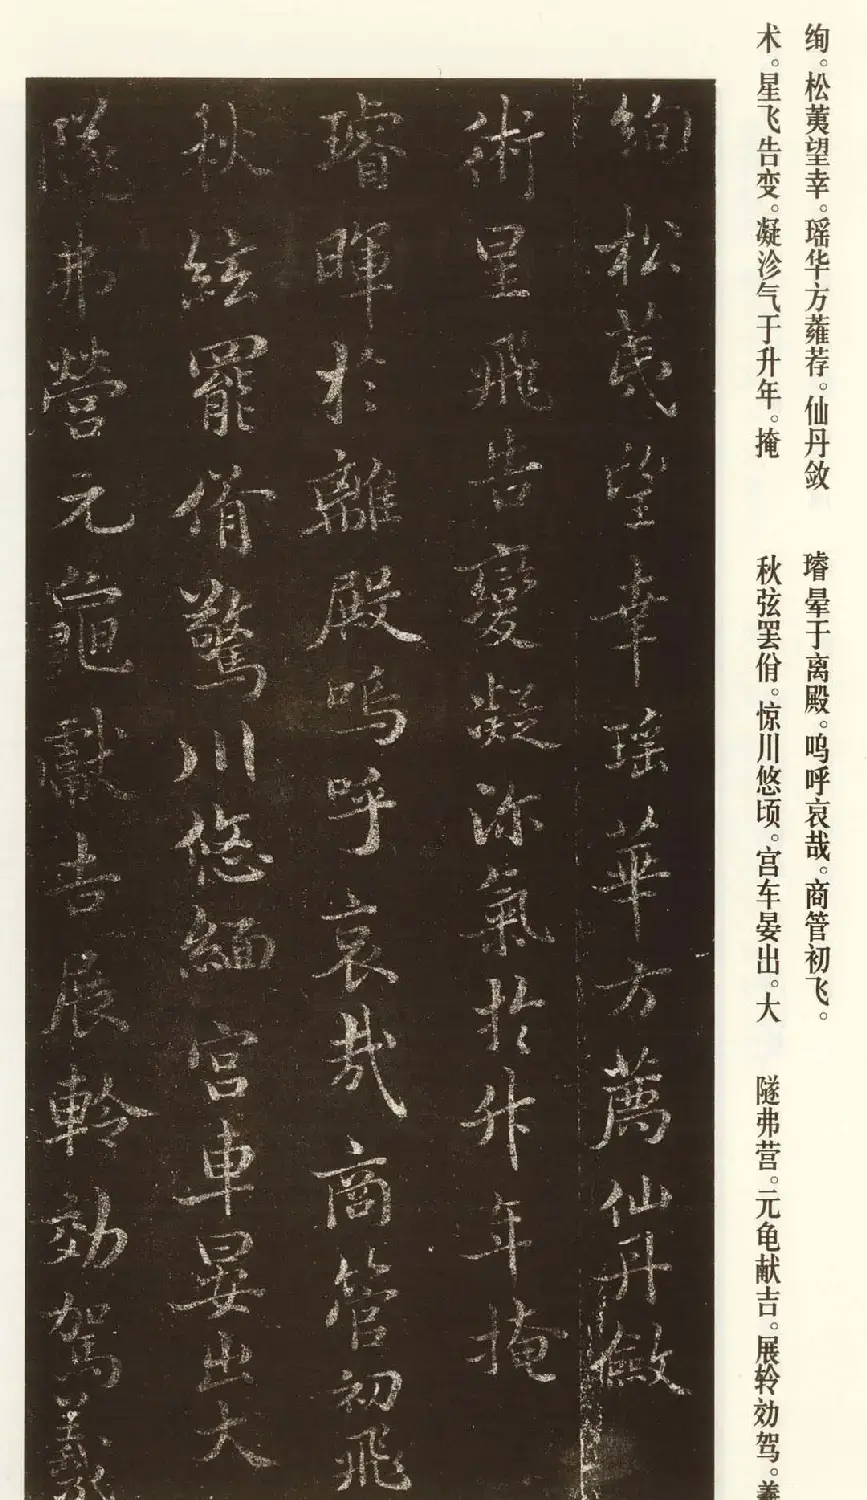 绚。松荑望幸。瑶华方薤荐。仙丹敛
术。星飞告变。凝沴气于升年。掩
璿晕于离殿。呜呼哀哉。商管初飞。
秋弦罢佾。惊川悠顷。宫车晏出。大
隧弗营。元龟献吉。展轸効驾。義
絢松荑望幸瑶華方薦仙丹斂
術星飛告變凝沴氣於升年掩
璿暉於離殿嗚呼哀哉商管初飛
秋絃罷佾驚川悠緬宮車晏出大
隧弗營元龜獻吉展軨効駕義